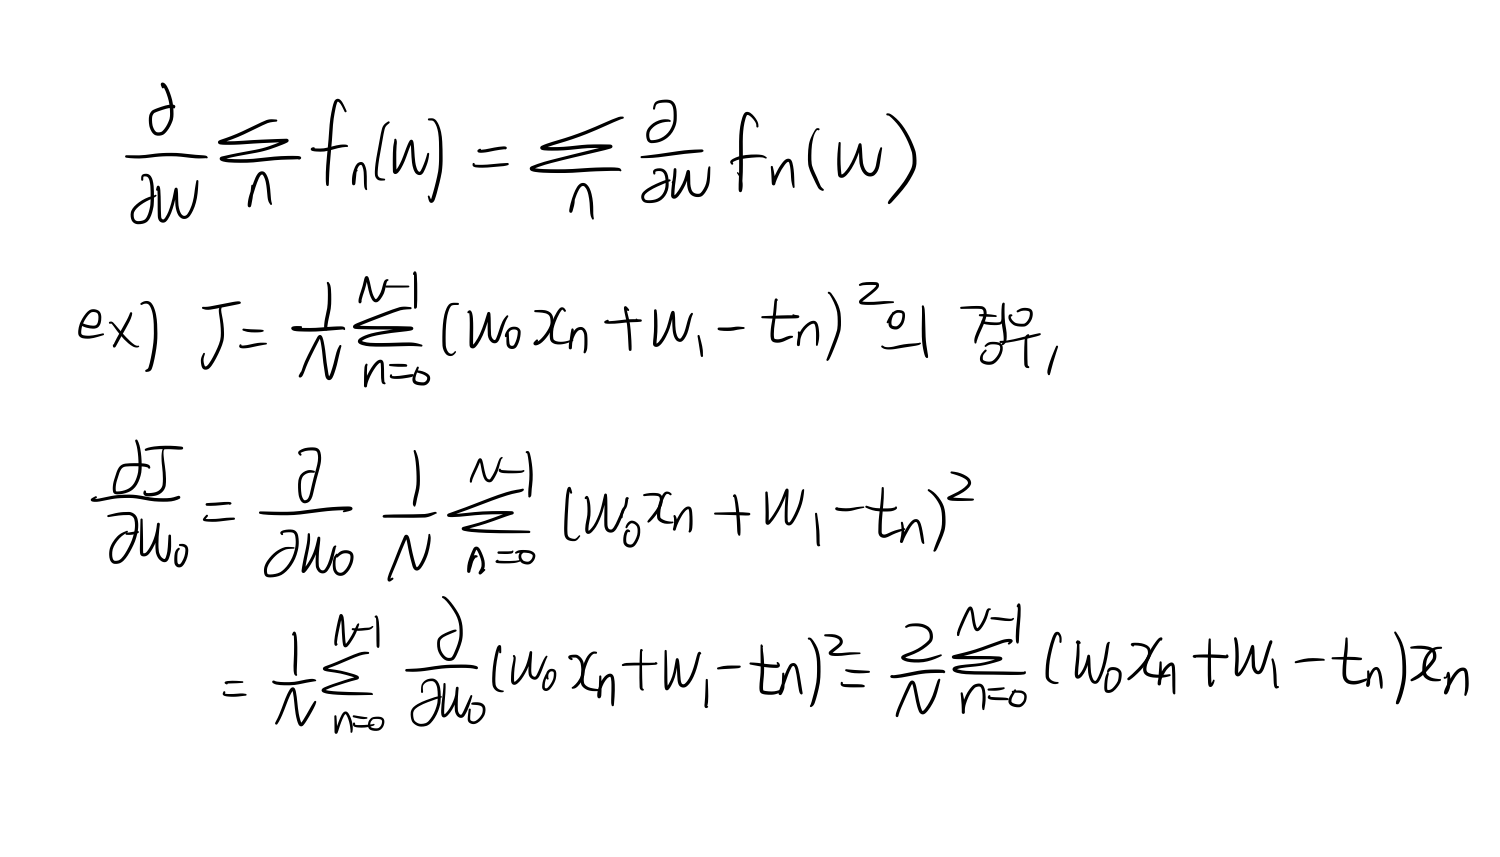 ∂/∂w Σ_n f_n(w) = Σ_n ∂/∂w f_n(w)
ex) J = 1/N Σ_{n=0}^{N-1} (w₀x_n + w₁ - t_n)²의 경우,
∂J/∂w₀ = ∂/∂w₀ 1/N Σ_{n=0}^{N-1} (w₀x_n + w₁ - t_n)²
= 1/N Σ_{n=0}^{N-1} ∂/∂w₀ (w₀x_n + w₁ - t_n)² = 2/N Σ_{n=0}^{N-1} (w₀x_n + w₁ - t_n)x_n